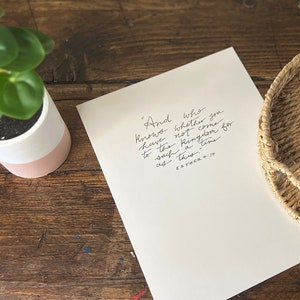 "And who
knows whether you
have not come
to the kingdom for
such a time
as this."
ESTHER 4:14